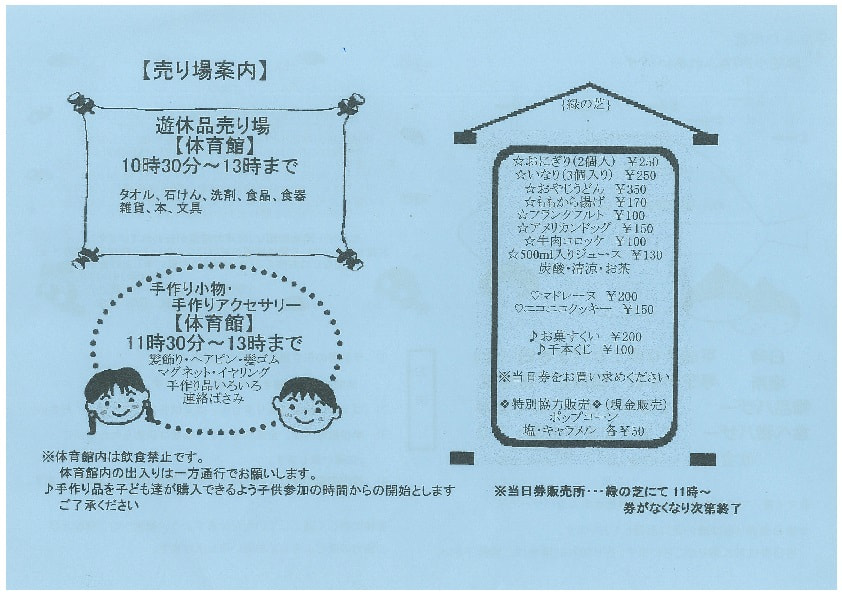 【売り場案内】
遊休品売り場
【体育館】
10時30分～13時まで
タオル、石けん、洗剤、食品、食器
雑貨、本、文具
手作り小物・
手作りアクセサリー
【体育館】
11時30分～13時まで
髪飾り・ヘアピン・髪ゴム
マグネット・イヤリング
手作り品いろいろ
連絡ばさみ
※体育館内は飲食禁止です。
体育館内の出入りは一方通行でお願いします。
♪手作り品を子ども達が購入できるよう子供参加の時間からの開始とします
ご了承ください
{緑の芝}
☆おにぎり(2個入) ￥250
☆いなり(3個入り) ￥250
☆おやじうどん ￥350
☆ももから揚げ ￥170
☆フランクフルト ￥100
☆アメリカンドッグ ￥150
☆牛肉コロッケ ￥100
☆500ml入りジュース ￥130
炭酸・清涼・お茶
♡マドレーヌ ￥200
♡ニコニコクッキー ￥150
♪お菓すくい ￥200
♪千本くじ ￥100
※当日券をお買い求めください
❖特別協力販売❖(現金販売)
ポップコーン
塩・キャラメル 各￥50
※当日券販売所・・・緑の芝にて11時～
券がなくなり次第終了